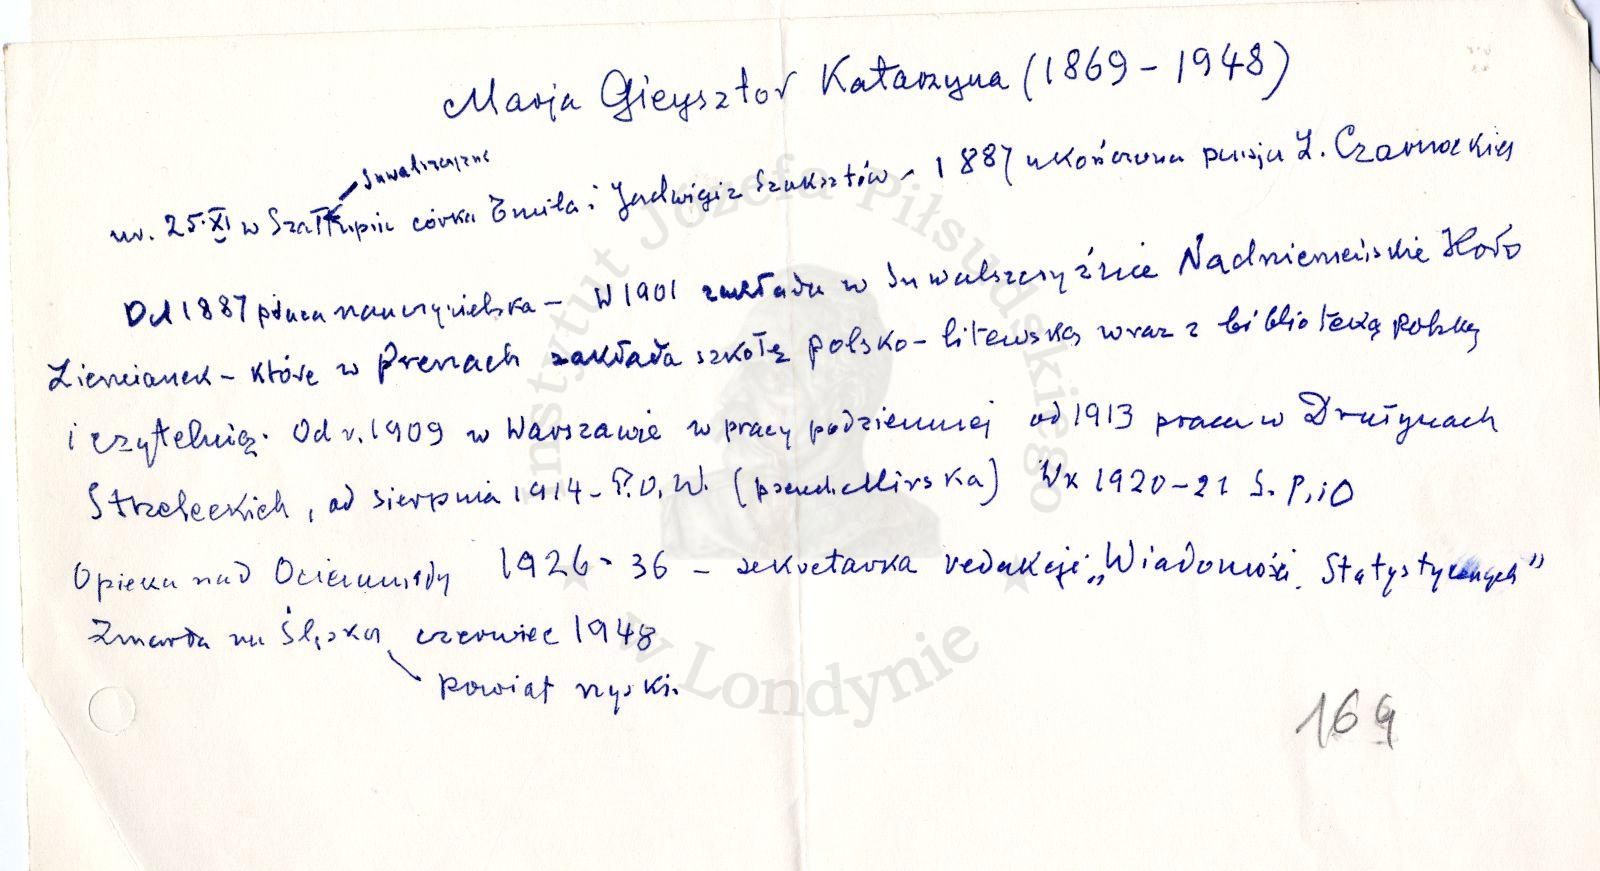 Marja Gieysztor Katarzyna (1869 - 1948)
Suwalszczyzna
ur. 25.XI w córka Emila i Jadwigi z Szuksztów - 1887 ukończona pensja L. Czarnockiej
Od 1887 praca nauczycielska - W 1901 zakłada w Suwalszczyźnie Nadniemeńskie Koło
Ziemianek - które w Prenach zakłada szkołę polsko-litewską wraz z biblioteką polską
i czytelnią. Od r. 1909 w Warszawie w pracy podziemnej od 1913 praca w Drużynach
Strzeleckich, od sierpnia 1914 - P.O.W. (pseud. Mirska) 1920-21
Opieka nad Ociemniały 1926-36 - sekretarka redakcji „Wiadomości Statystycznych"
Zmarła na Śląsku czerwiec 1948
powiat nyski.
169
Instytut Józefa Piłsudskiego
w Londynie